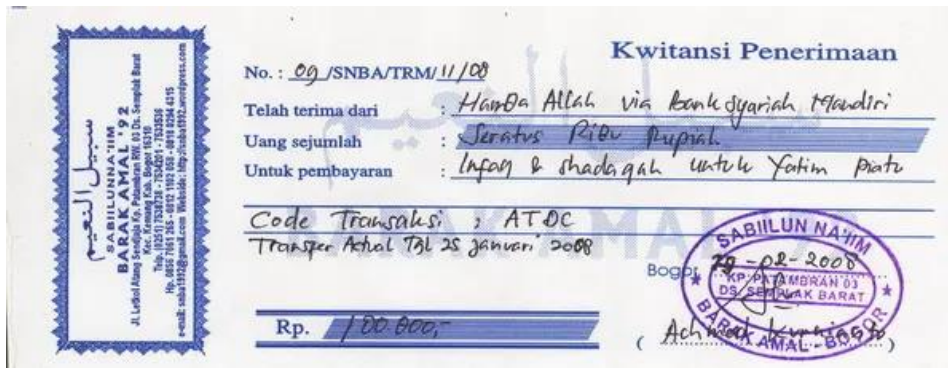 سبيل النعيم
SABIILUNNA'IIM
BARAK AMAL '92
Jl. Letkol Atang Sendjaja Kp. Patambran RW. 03 Ds. Semplak Barat
Kec. Kemang Kab. Bogor 16310
Telp. (0251) 7538738 - 7534201 - 7533536
Hp. 0856 7061 265 - 0812 1102 058 - 0818 0294 4215
e-mail: snba1992@gmail.com Webside: http://snba1992.wordpress.com
Kwitansi Penerimaan
No. : 09 /SNBA/TRM/ 11/08
Telah terima dari : Hamba Allah via Bank Syariah Mandiri
Uang sejumlah : Seratus Ribu Rupiah
Untuk pembayaran : Infaq & shadaqah untuk Yatim Piatu
Code Transaksi : ATDC
Transper Tgl 25 Januari 2008
سبيل النعيم
BARAK AMAL '92
Bogor, 29-02-2008
SABIILUN NA'IIM
KP. PATAMBRAN 03
DS. SEMPLAK BARAT
BARAK AMAL - BOGOR
Rp. 100.000,-
( Achmad )